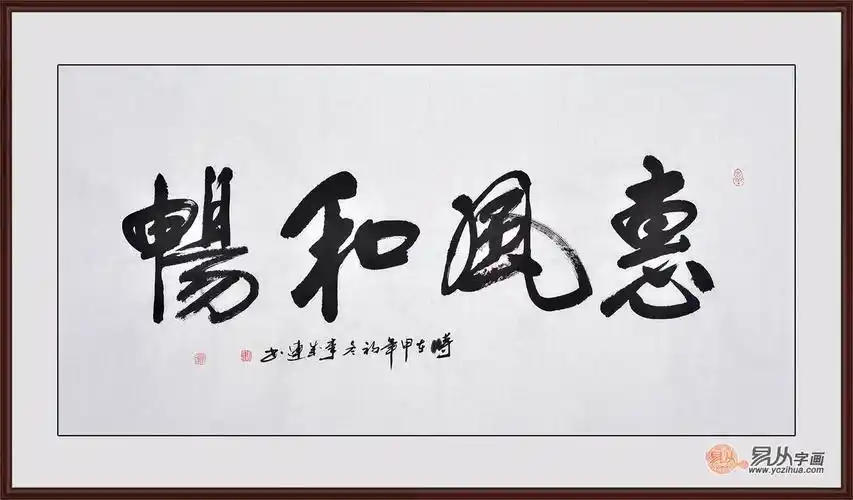 惠風和暢
時在甲年初冬李成連书
易从字画
www.yczihua.com